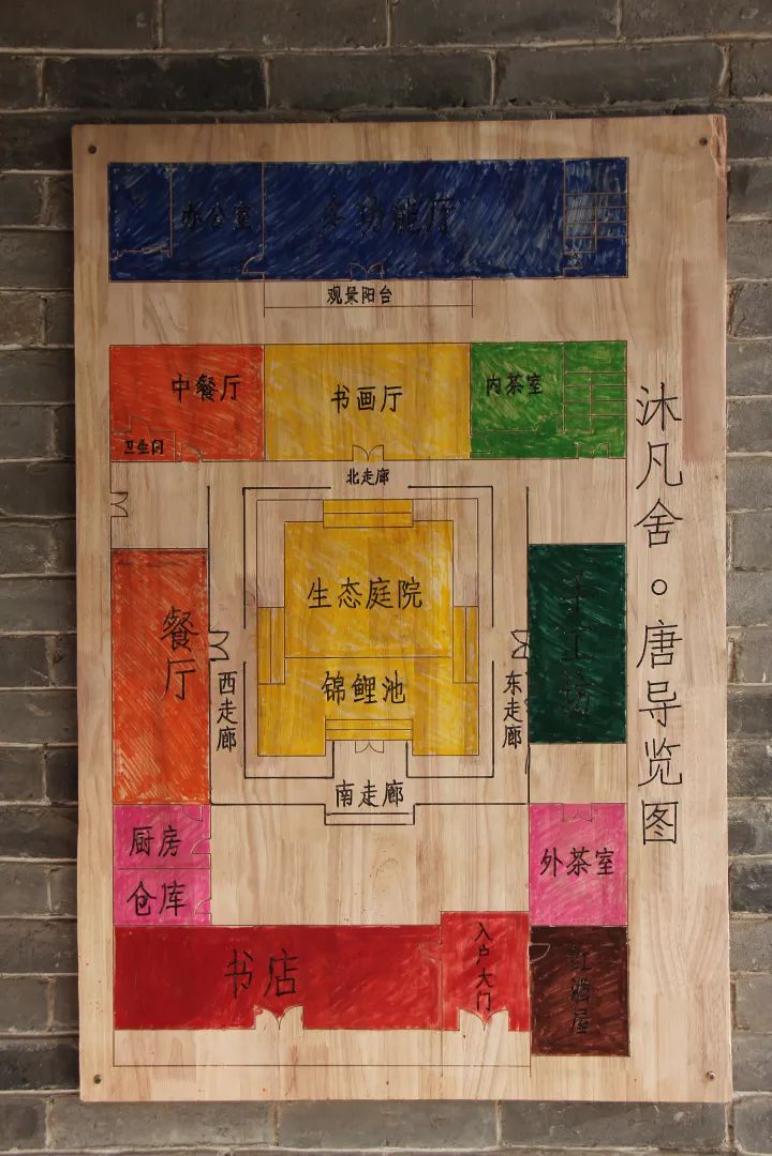 办公室
多功能厅
观景阳台
中餐厅
书画厅
内茶室
卫生间
北走廊
沐凡舍。唐导览图
生态庭院
餐厅
手工坊
锦鲤池
西走廊
东走廊
南走廊
厨房
外茶室
仓库
书店
入户大门
红酒屋